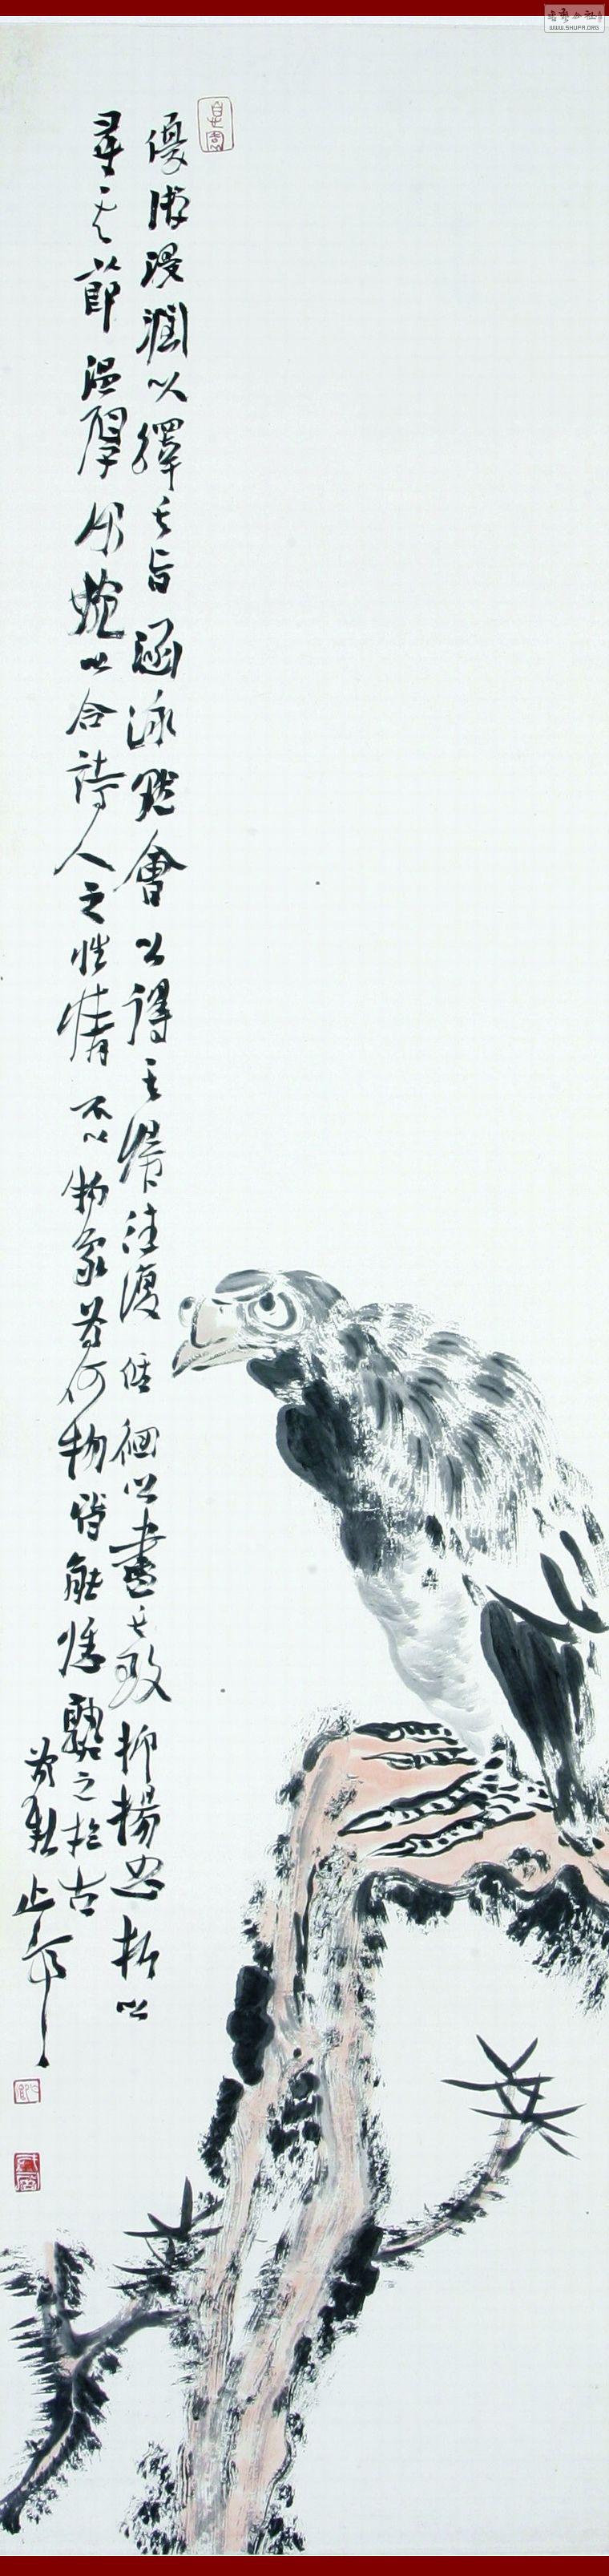 優游浸潤以繹其旨涵泳默會以得其歸往復低徊以盡其致抑揚曲折以
尋其節溫厚和婉以合詩人之性情不以物象為何物皆能
之於古
WWW.SHUFA.ORG